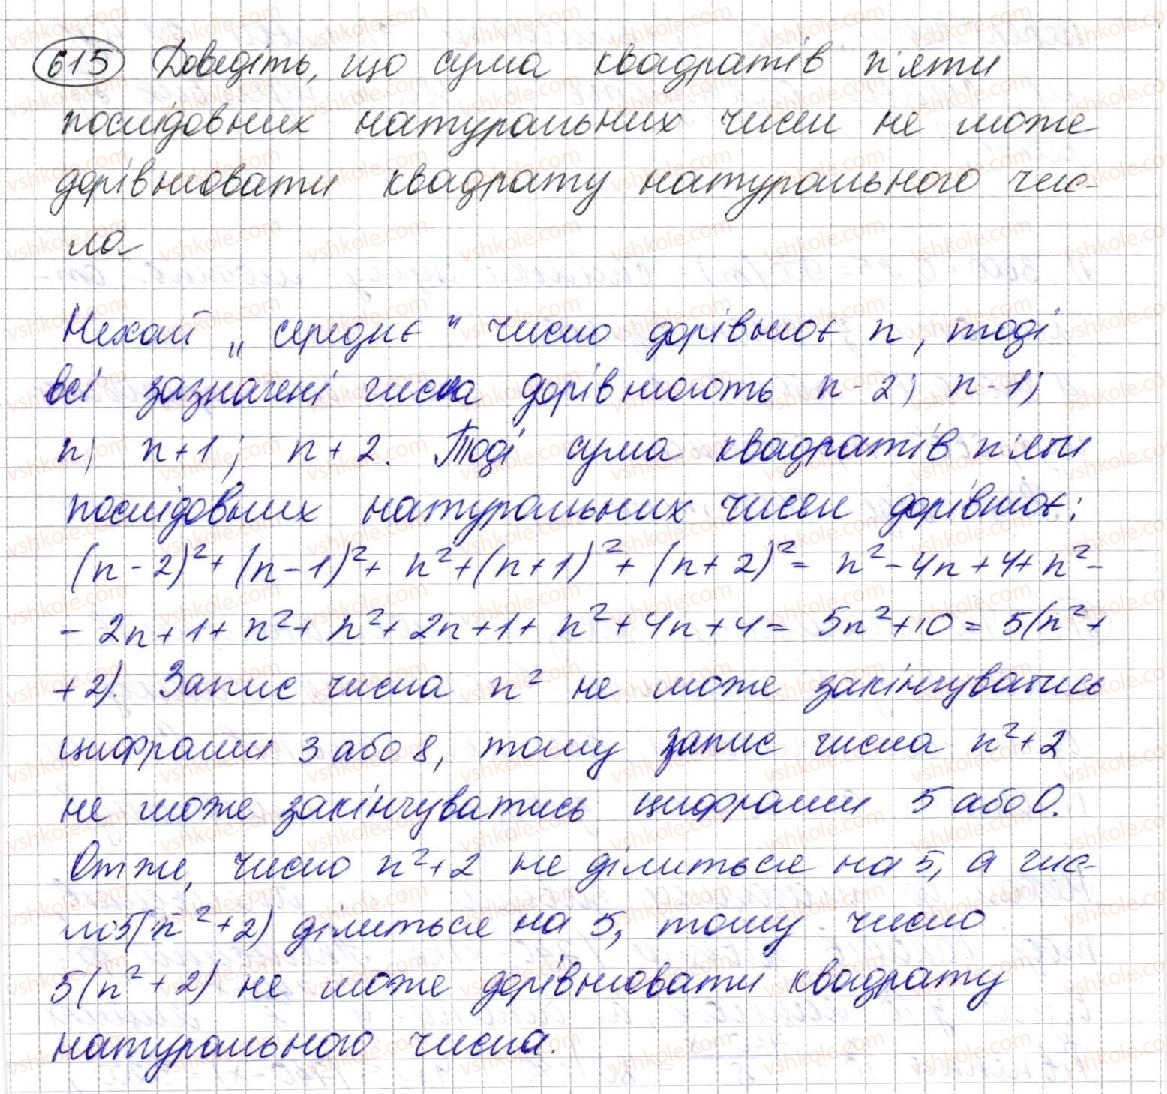 615 Доведіть, що сума квадратів п'яти
послідовних натуральних чисел не може
дорівнювати квадрату натурального чис-
ла
Нехай „середнє" число дорівнює n, тоді
всі зазначені числа дорівнюють n-2; n-1;
n; n+1; n+2. Тоді сума квадратів п'яти
послідовних натуральних чисел дорівнює:
(n-2)²+(n-1)²+n²+(n+1)²+(n+2)²= n²-4n+4+n²-
-2n+1+n²+n²+2n+1+n²+4n+4=5n²+10=5(n²+
+2). Запис числа n² не може закінчуватись
цифрами 3 або 8, тому запис числа n²+2
не може закінчуватись цифрами 5 або 0.
Отже, число n²+2 не ділиться на 5, а чис-
ло 5(n²+2) ділиться на 5, тому число
5(n²+2) не може дорівнювати квадрату
натурального числа.